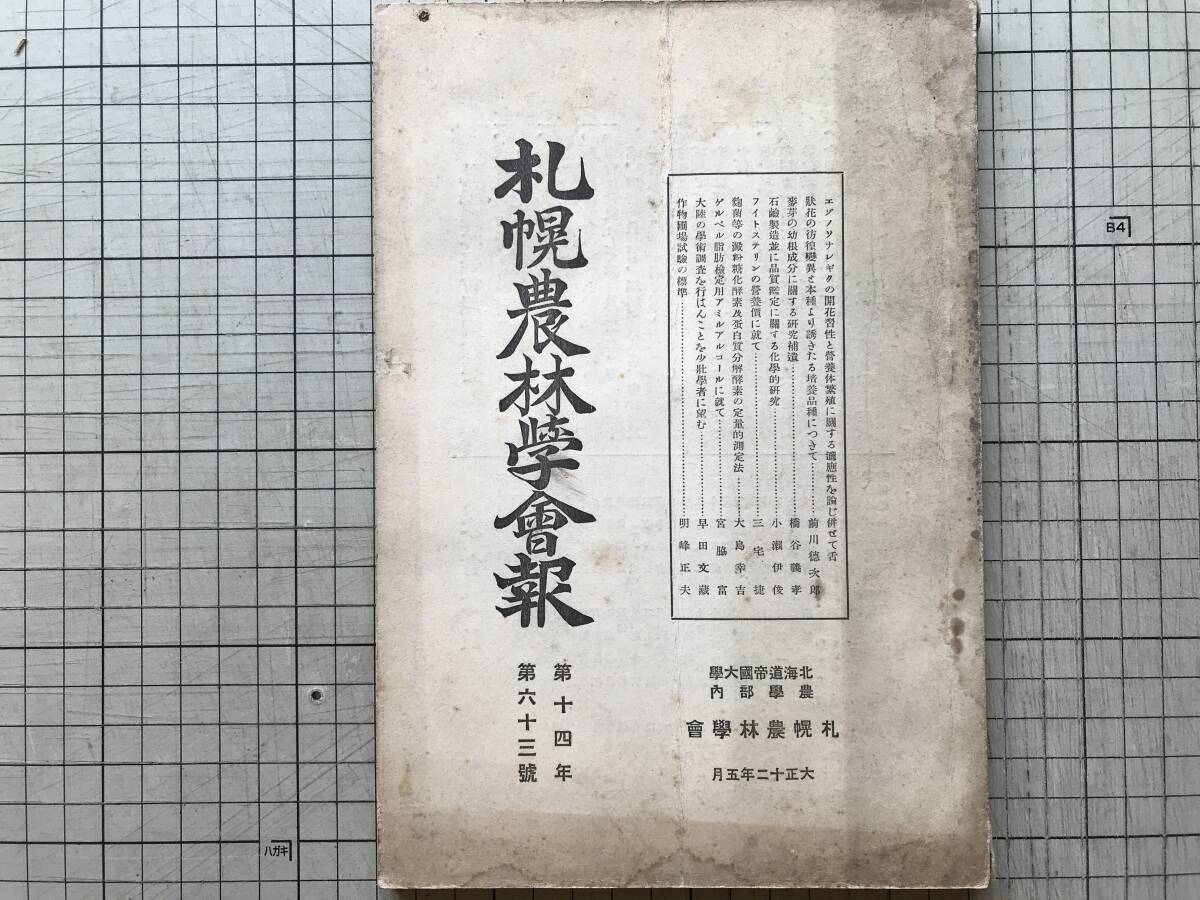 エゾノソナレギクの開花習性と營養体繁殖に關する適應性を論じ併せて舌
狀花の彷徨變異と本種より誘きたる培養品種につきて………前川德次郎
麥芽の幼根成分に關する硏究補遺………橋谷義孝
石鹼製造並に品質鑑定に關する化學的硏究………小瀨伊俊
フイトステリンの營養價に就て………三宅捷
麴菌等の澱粉糖化酵素及蛋白質分解酵素の定量的測定法………大島幸吉
ゲルベル脂肪檢定用アミルアルコールに就て………宮脇富
大陸の學術調査を行はんことを少壯學者に望む………早田文藏
作物圃場試驗の標準………明峰正夫
北海道帝國大學
農學部內
札幌農林學會
大正十二年五月
札幌農林學會報
第十四年
第六十三號
B4
ハガキ